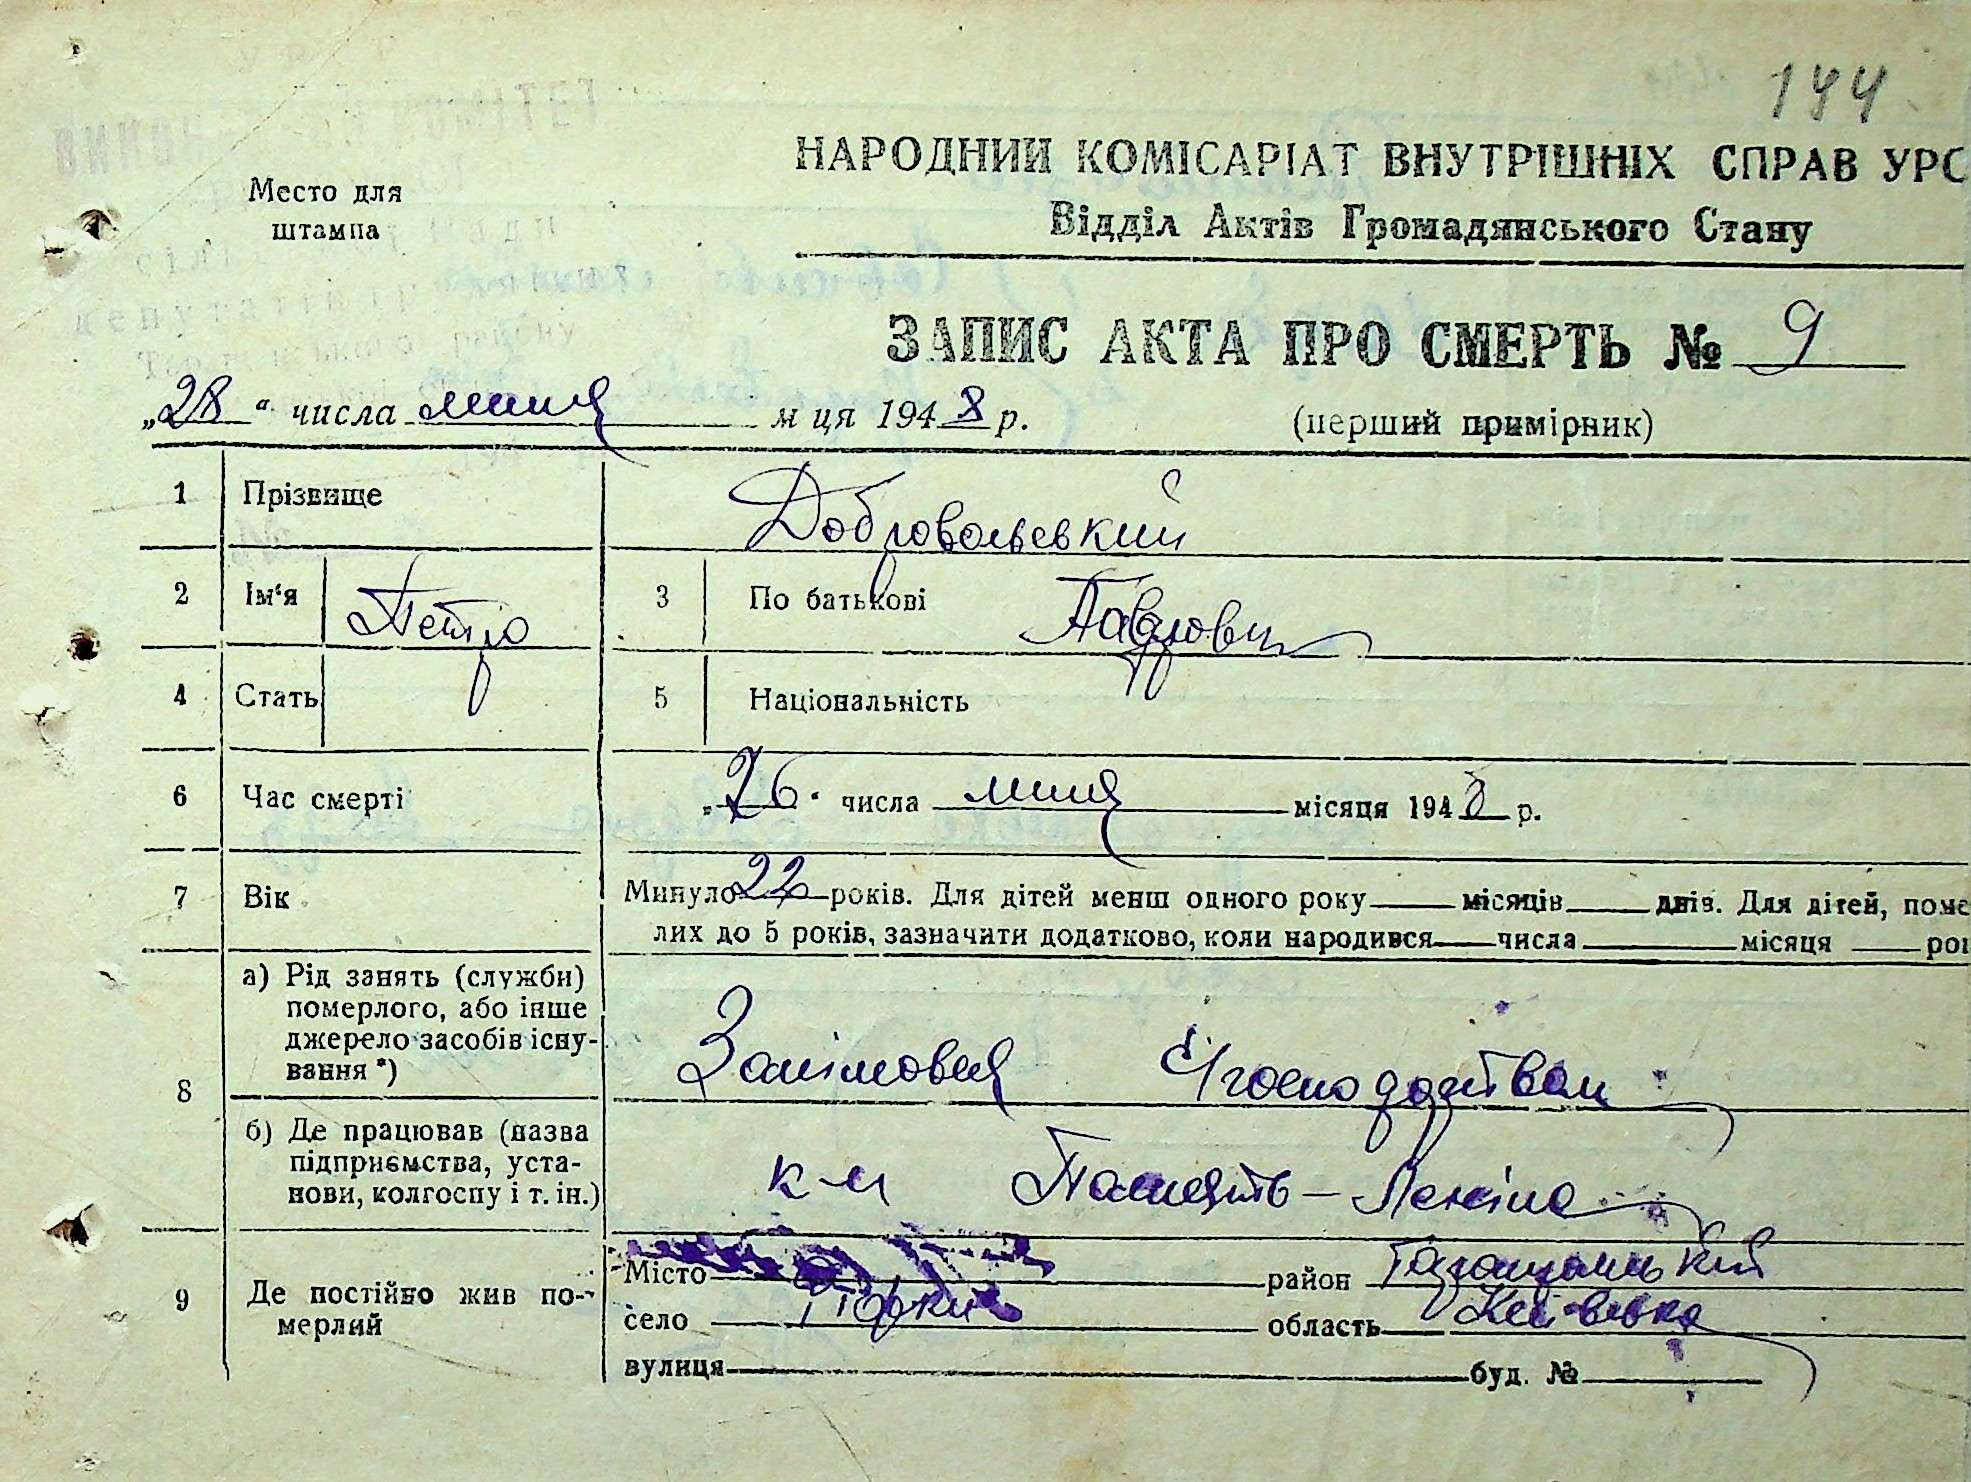 144
НАРОДНИЙ КОМІСАРІАТ ВНУТРІШНІХ СПРАВ УРС
Место для штампа
Відділ Актів Громадянського Стану
ВИКОН КОМІТЕТ
ЗАПИС АКТА ПРО СМЕРТЬ № 9
„28“ числа липня м ця 1948 р.
(перший примірник)
1 Прізвище Добровольський
2 Ім'я Петро 3 По батькові Павлович
4 Стать 5 Національність
6 Час смерті „26“ числа липня місяця 1948 р.
7 Вік Минуло 22 років. Для дітей менш одного року місяців днів. Для дітей, поме
лих до 5 років, зазначити додатково, коли народився числа місяця рог
8 а) Рід занять (служби)
померлого, або інше
джерело засобів існу-
вання *)
господством
б) Де працював (назва
підприємства, уста-
нови, колгоспу і т. ін.)
к-м Память-Леніна
9 Де постійно жив по-
мерлий
Місто район Таращанський
село область Київська
вулиця буд. №